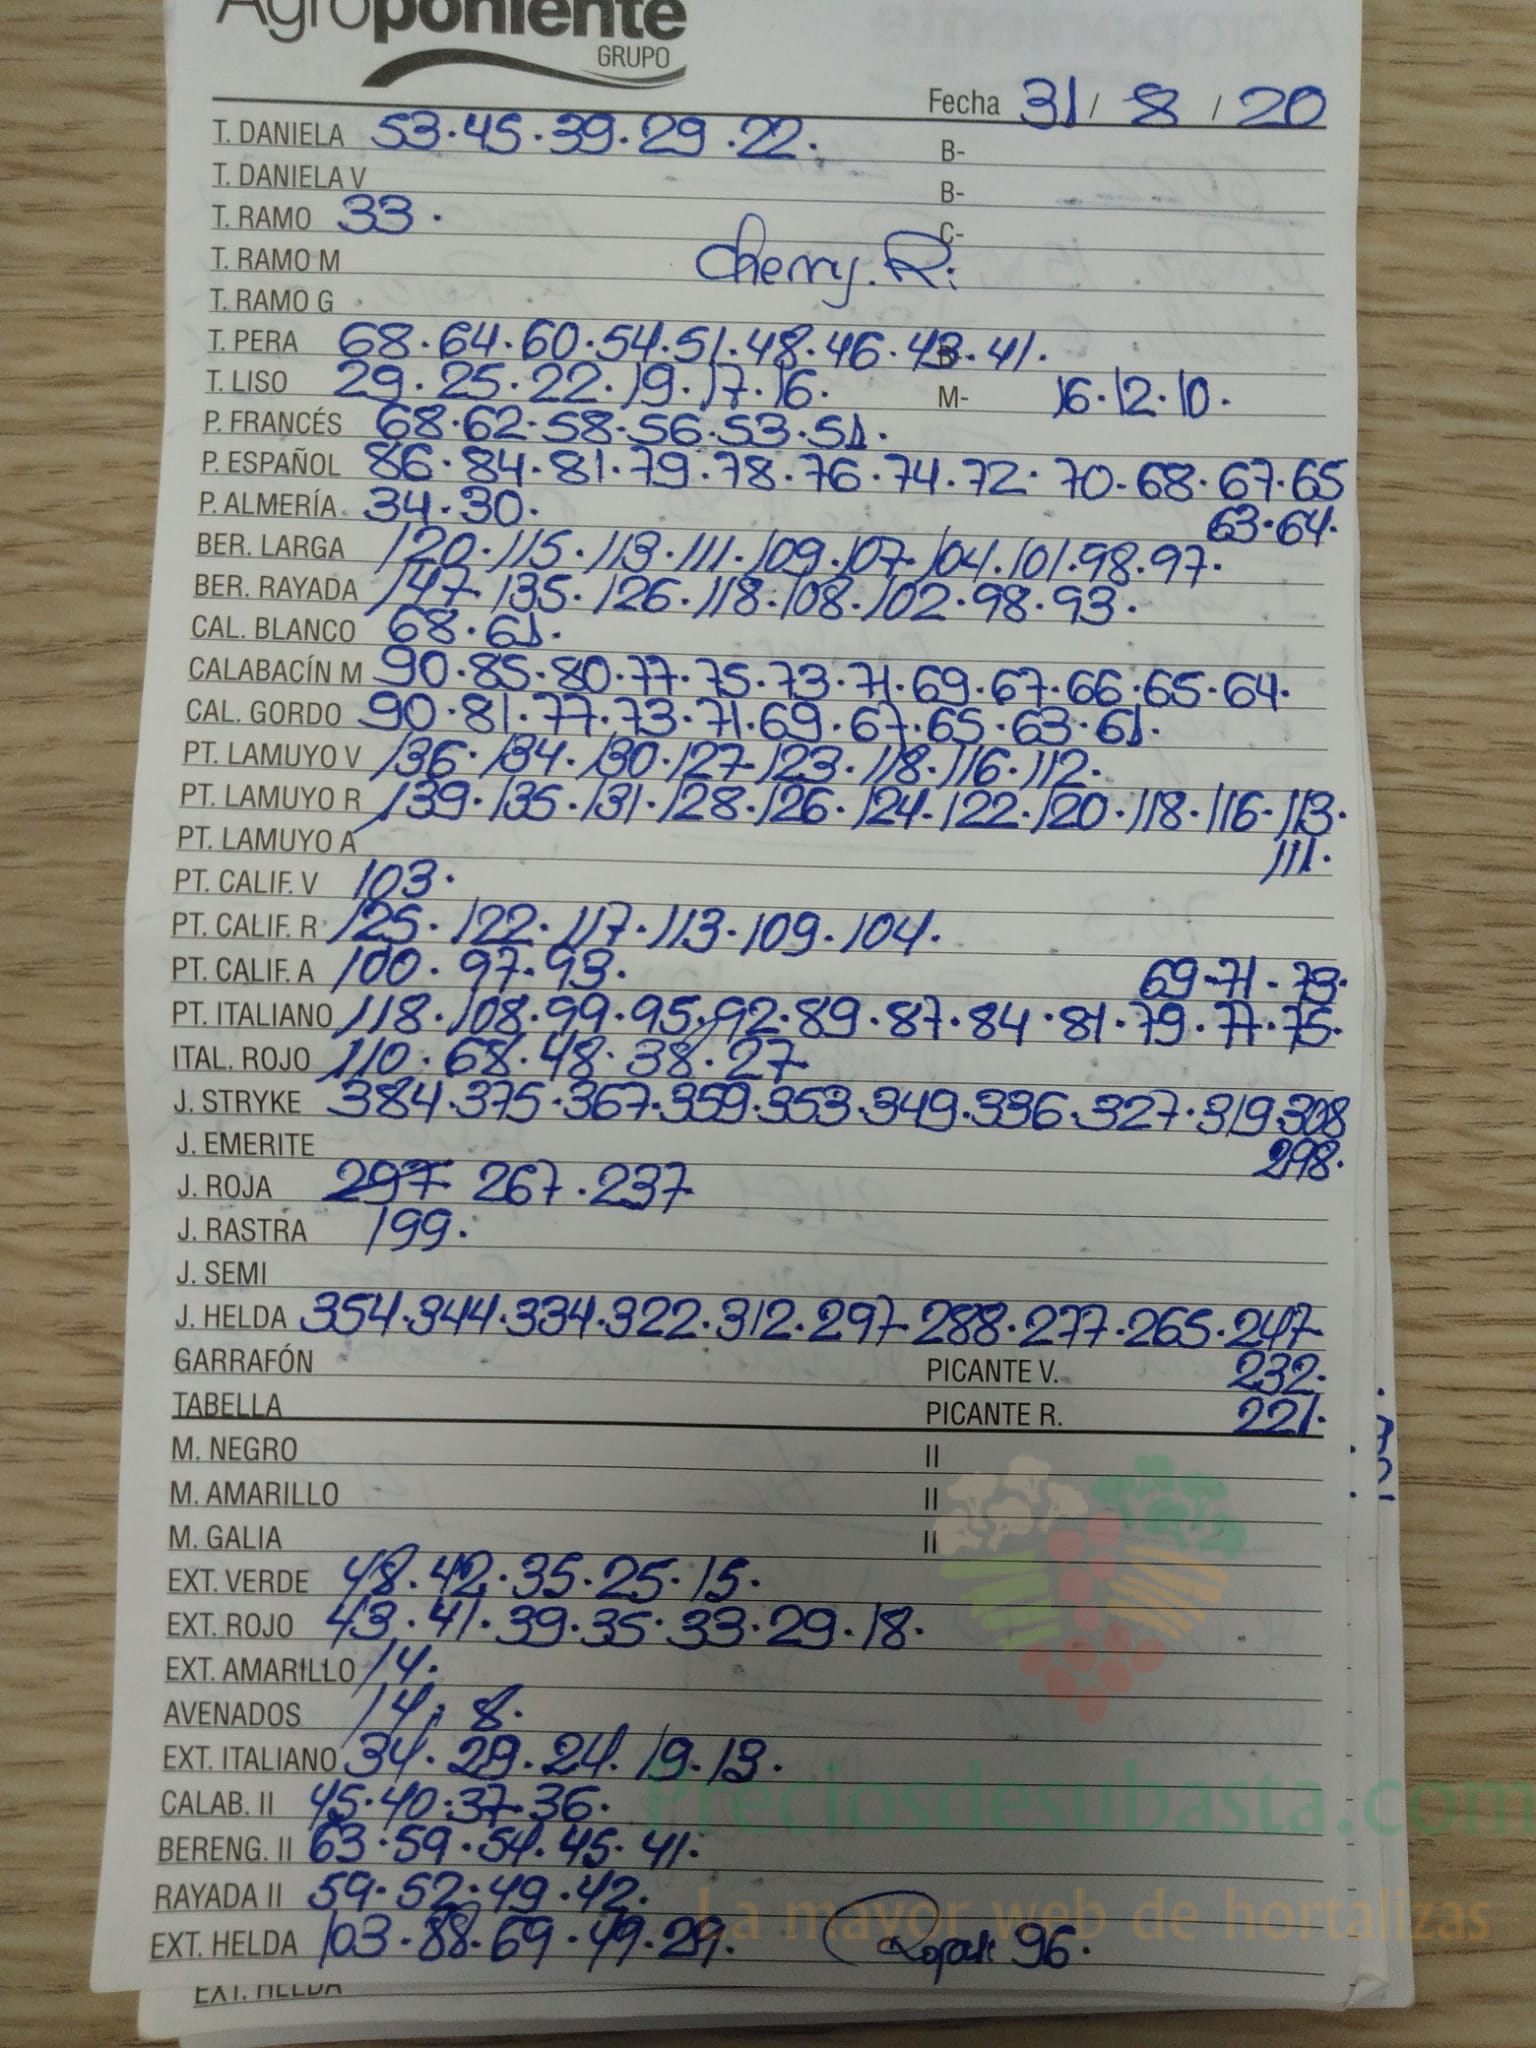 Agroponiente
GRUPO
Fecha 31 / 8 / 20
T. DANIELA 53·45·39·29·22· B-
T. DANIELA V B-
T. RAMO 33· C-
T. RAMO M Cherry. R:
T. RAMO G
T. PERA 68·64·60·54·51·48·46·43·41·
T. LISO 29·25·22·19·17·16· M- 16·12·10·
P. FRANCÉS 68·62·58·56·53·51·
P. ESPAÑOL 86·84·81·79·78·76·74·72·70·68·67·65
63·64·
P. ALMERÍA 34·30·
BER. LARGA 120·115·113·111·109·107·104·101·98·97·
BER. RAYADA 147·135·126·118·108·102·98·93·
CAL. BLANCO 68·61·
CALABACÍN M 90·85·80·77·75·73·71·69·67·66·65·64·
CAL. GORDO 90·81·77·73·71·69·67·65·63·61·
PT. LAMUYO V 136·134·130·127·123·118·116·112·
PT. LAMUYO R 139·135·131·128·126·124·122·120·118·116·113·
111·
PT. LAMUYO A
PT. CALIF. V 103·
PT. CALIF. R 125·122·117·113·109·104·
PT. CALIF. A 100·97·93· 69·71·73·
PT. ITALIANO 118·108·99·95·92·89·87·84·81·79·77·75·
ITAL. ROJO 110·68·48·38·27
J. STRYKE 384·375·367·359·353·349·336·327·319·308
298·
J. EMERITE
J. ROJA 297 267·237
J. RASTRA 199·
J. SEMI
J. HELDA 354·344·334·322·312·297 288·277·265·247
GARRAFÓN PICANTE V. 232·
TABELLA PICANTE R. 221·
M. NEGRO II
M. AMARILLO II
M. GALIA II
EXT. VERDE 48·42·35·25·15·
EXT. ROJO 43·41·39·35·33·29·18·
EXT. AMARILLO 14·
AVENADOS 14· 8·
EXT. ITALIANO 34·29·24·19·13·
CALAB. II 45·40·37·36·
Preciosdesubasta.com
BERENG. II 63·59·54·45·41·
RAYADA II 59·52·49·42·
La mayor web de hortalizas
EXT. HELDA 103·88·69·49·29· 96·
EXT. HELDA